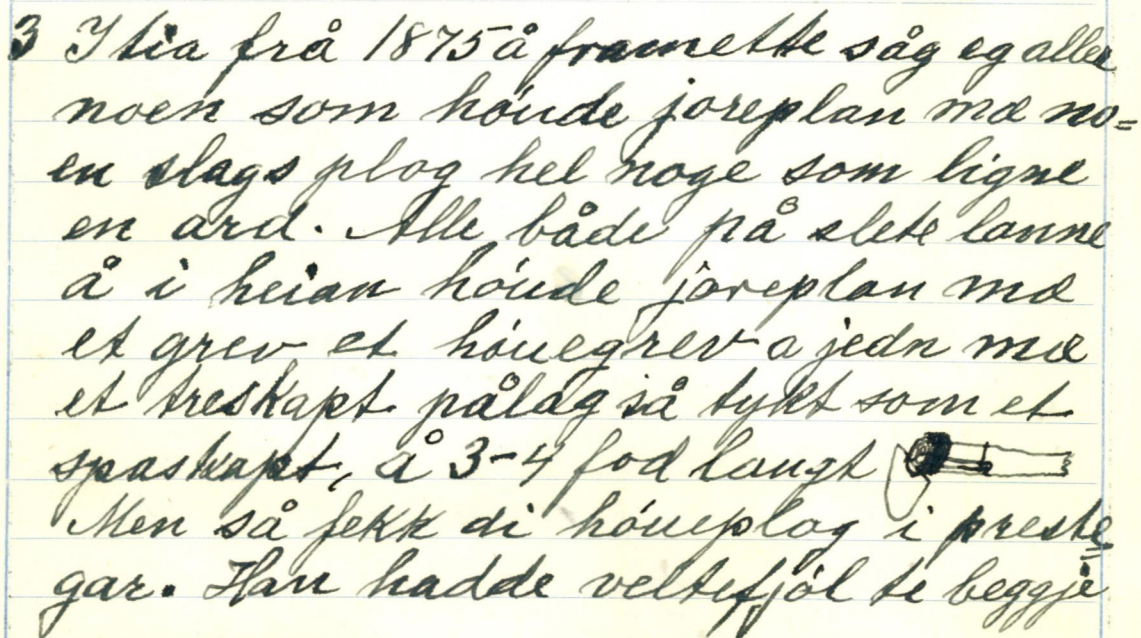 3 I tia frå 1875 å framette såg eg aller
noen som hóude joreplan mæ no=
en slags plog hel noge som ligne
en ard. Alle både på slete lanne
å i heian hóude joreplan mæ
et grev et hóuegrev a jedn mæ
et treskapt pålag så tykt som et
spaskapt, å 3-4 fod langt
Men så fekk di hóueplog i preste
gar. Han hadde veltefjól te beggje